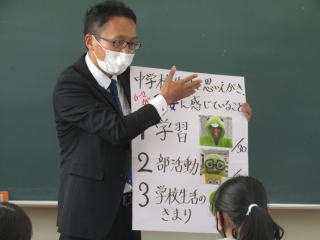 中学校
思えがき、
6-2
安に感じていること
学習
/30
2 部活動
3 学校生活の
きまり